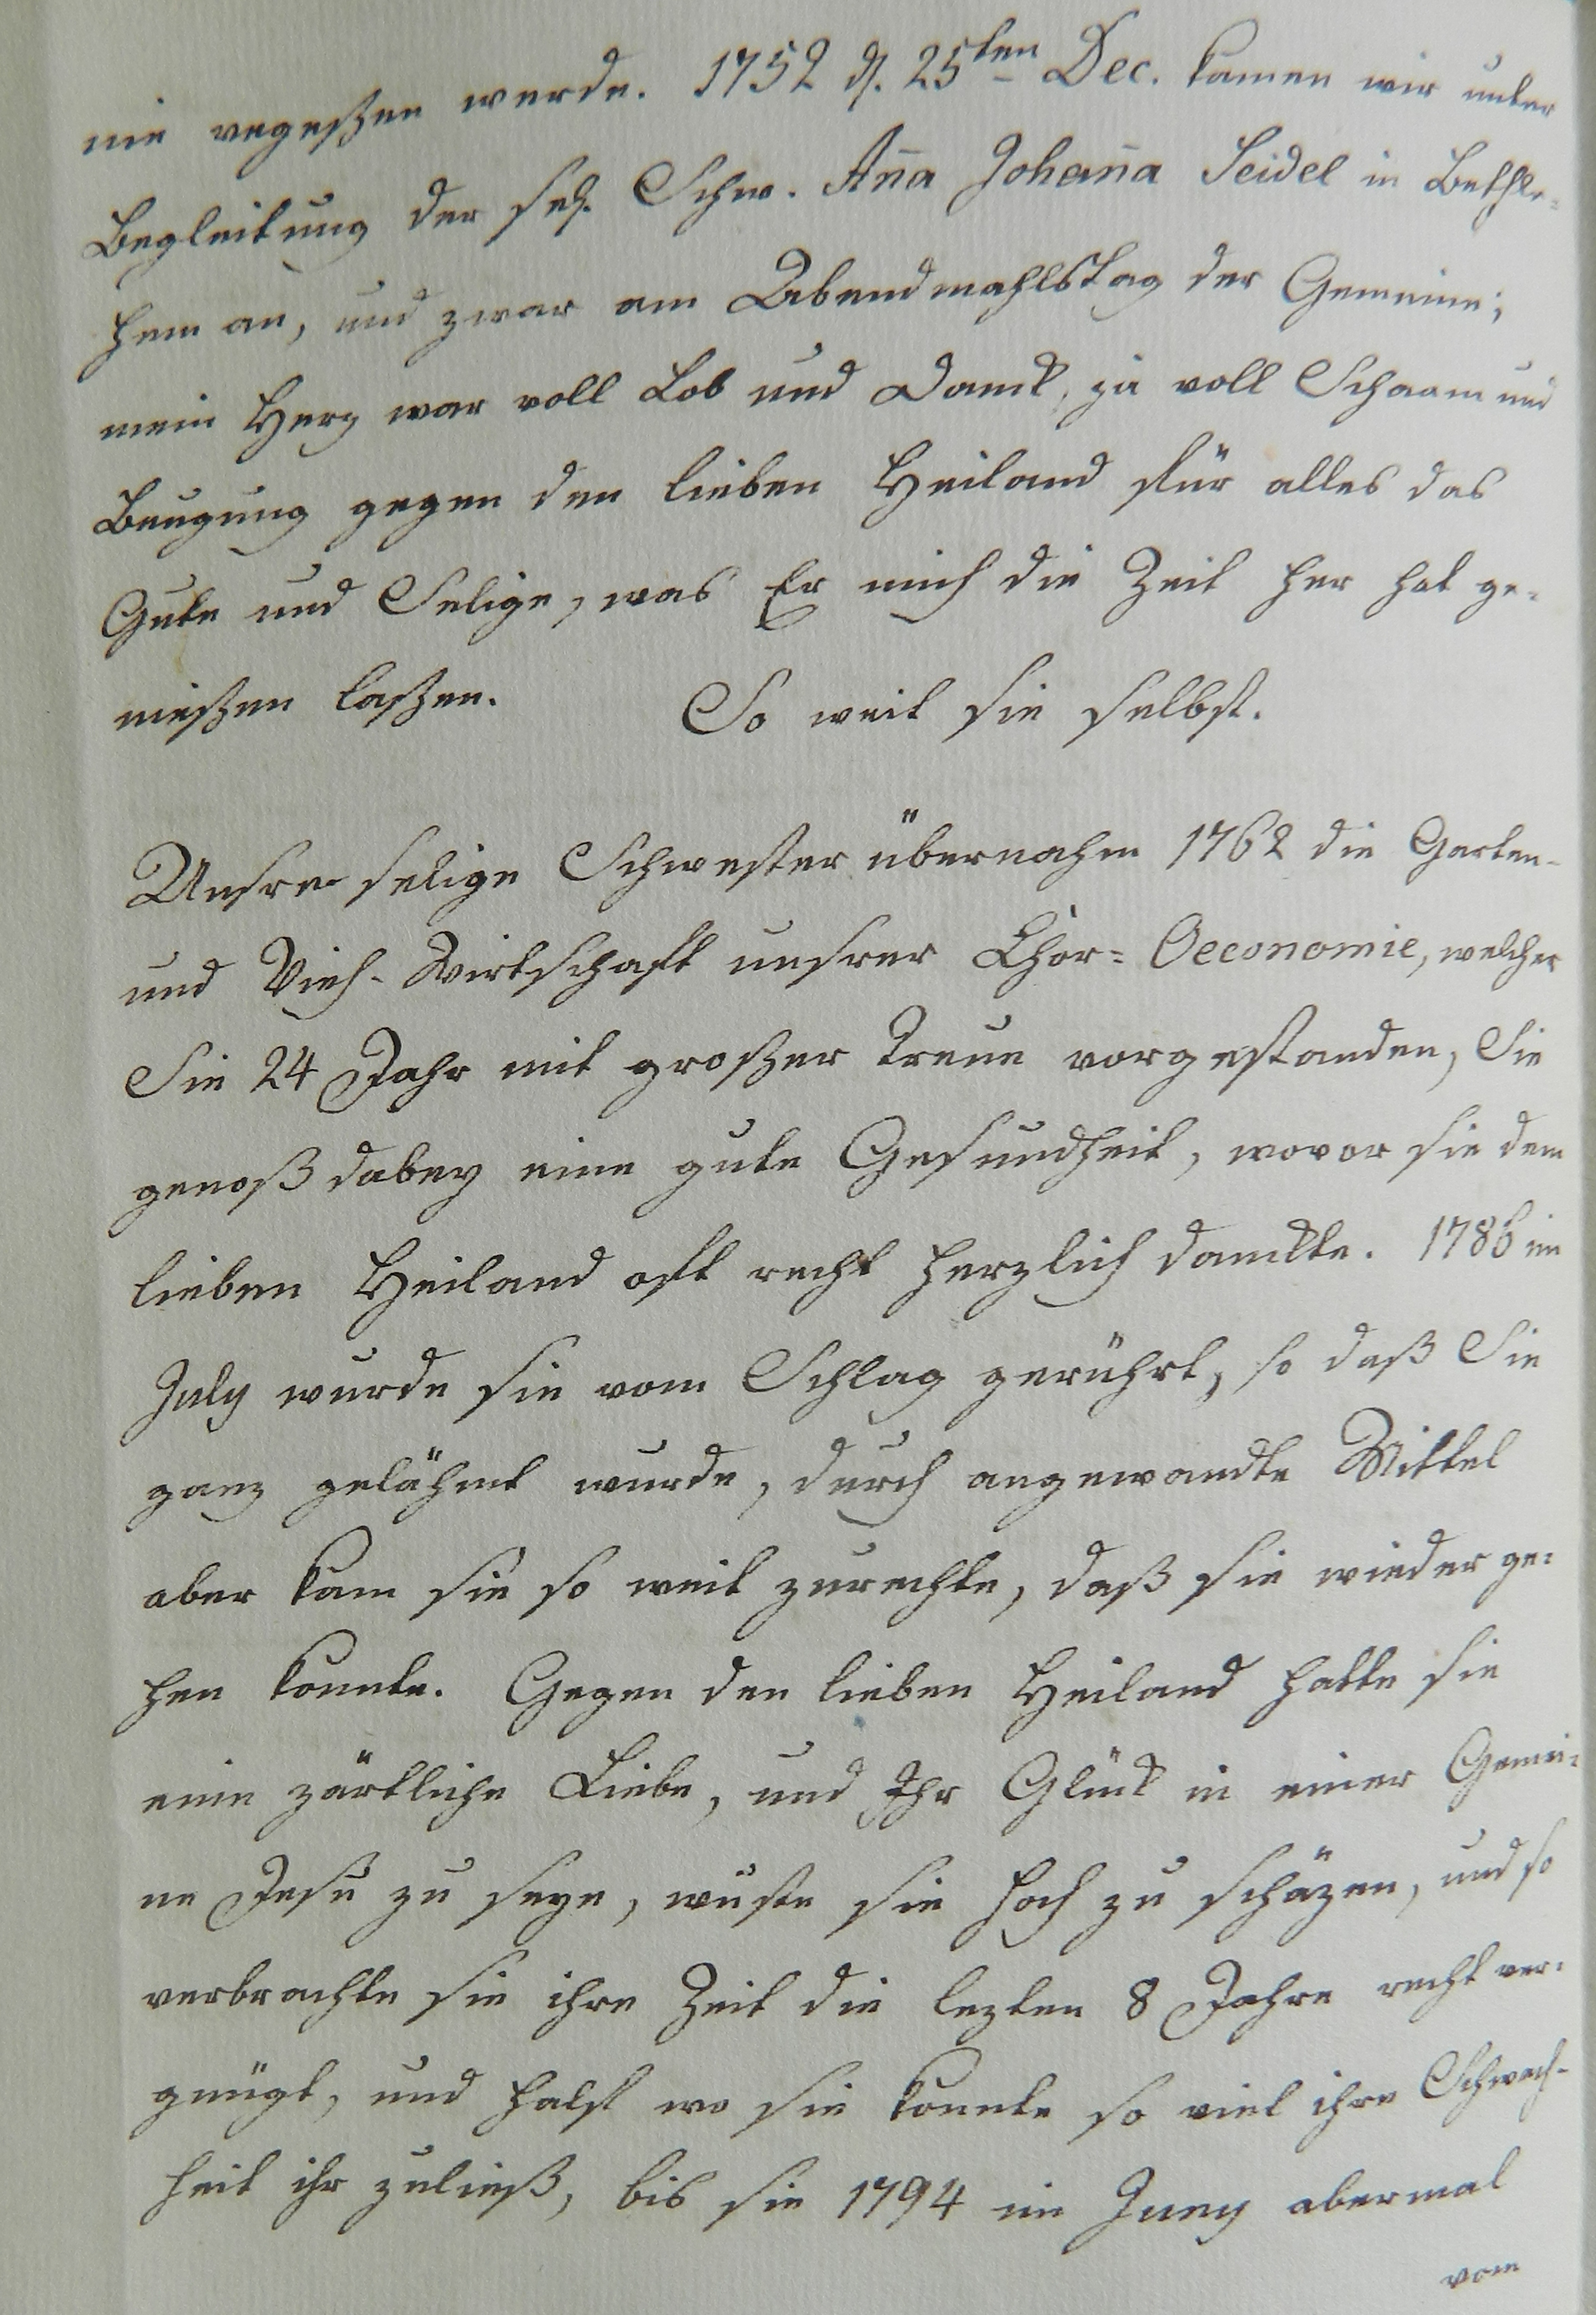 nie vergeßen werde. 1752 d. 25ten Dec. kamen wir unter
Begleitung der sel. Schw. Aña Johaña Seidel in Bethle-
hem an, und zwar am Abendmahlstag der Gemeine;
mein Herz war voll Lob und Danck, ja voll Schaam und
Beugung gegen den lieben Heiland für alles das
Gute und Selige, was Er mich die Zeit her hat ge-
nießen laßen. So weit sie selbst.
Unsre selige Schwester übernahm 1762 die Garten-
und Vieh-Wirtschaft unsrer Chor-Oeconomie, welcher
Sie 24 Jahr mit großer Treue vorgestanden, Sie
genoß dabey eine gute Gesundheit, wovor sie dem
lieben Heiland oft recht herzlich danckte. 1786 im
July wurde sie vom Schlag gerührt, so daß Sie
ganz gelähmt wurde, durch angewandte Mittel
aber kam sie so weit zurechte, daß sie wieder ge-
hen konnte. Gegen den lieben Heiland hatte sie
eine zärtliche Liebe, und Ihr Glück in einer Gemei-
ne Jesu zu seyn, wuste sie hoch zu schäzen, und so
verbrachte sie ihre Zeit die lezten 8 Jahre recht ver-
gnügt, und half wo sie konnte so viel ihre Schwach-
heit ihr zuließ, bis sie 1794 im Juny abermal
vom